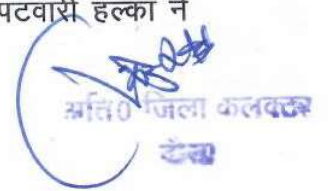 पटवारी हल्का ने
अति० जिला कलक्टर